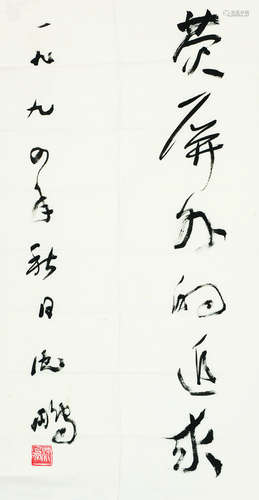 荧屏外的追求
一九九四年秋日德鹏